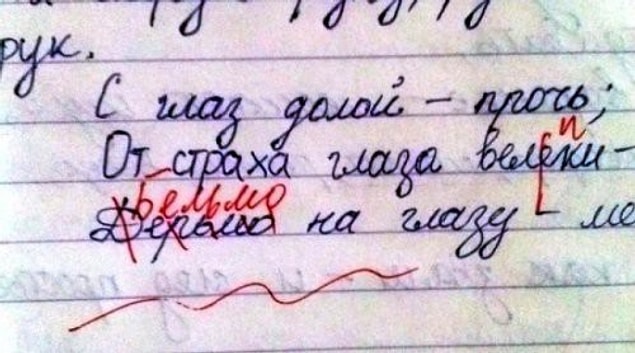 рук.
С глаз долой – прочь;
п
От страха глаза велеки –
Бельмо
Дерьмо на глазу –